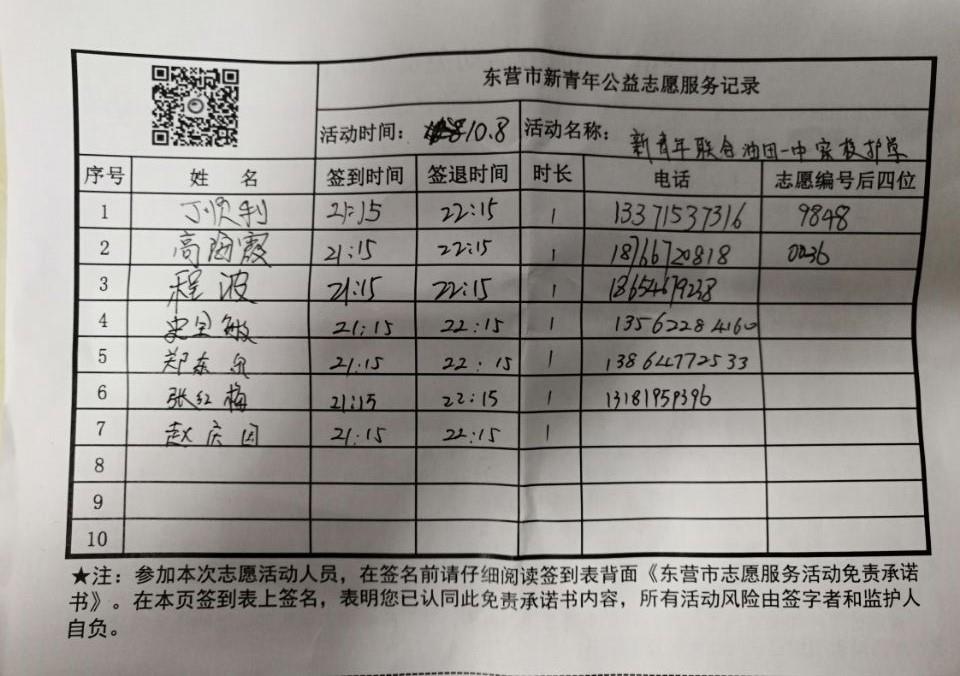 东营市新青年公益志愿服务记录
活动时间： 10.8 活动名称： 新青年联合油田一中家校护学
序号 姓 名 签到时间 签退时间 时长 电话 志愿编号后四位
1 丁顺利 21:15 22:15 1 13371537316 9848
2 高海霞 21:15 22:15 1 18766720818 0036
3 程波 21:15 22:15 1 13654679238
4 史宝敏 21:15 22:15 1 13562284160
5 郑东 21:15 22:15 1 13864772533
6 张红梅 21:15 22:15 1 13181959396
7 赵庆国 21:15 22:15 1
8
9
10
★注：参加本次志愿活动人员，在签名前请仔细阅读签到表背面《东营市志愿服务活动免责承诺
书》。在本页签到表上签名，表明您已认同此免责承诺书内容，所有活动风险由签字者和监护人
自负。